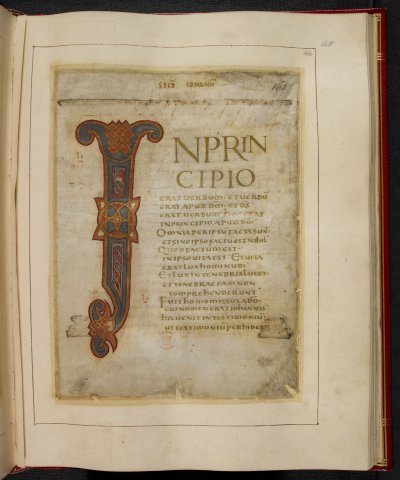 SECD IOHANN
165
INPRIN
CIPIO
ERAT UERBUM · ET UERBU
ERAT APUD DM · ET DS
ERAT UERBUM HOC ERAT
IN PRINCIPIO APUD DM
OMNIA PER IPSU FACTA SUNT
ET SINE IPSO FACTU EST NIHIL
QUOD FACTUM EST ·
IN IPSO UITA EST ET UITA
ERAT LUX HOMINUM
ET LUX IN TENEBRIS LUCET
ET TENEBRAE EAM NON
COMPREHENDERUNT
FUIT HOMO MISSUS A DO
CUI NOMEN ERAT IOHANNIS
HIC UENIT IN TESTIMONIU
UT TESTIMONIU PERHIBERET